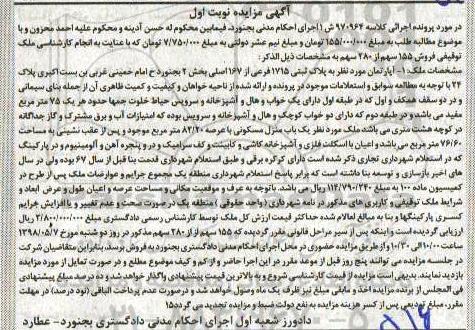 آگهی مزایده نوبت اول
در مورد پرونده اجرائی کلاسه ۹۷۰۹۶۴ ش ۱ اجرای احکام مدنی بجنورد، فیمابین محکوم له حسن آدینه و محکوم علیه احمد محزون و با
موضوع مطالبه طلب به مبلغ ۱۵۵/۰۰۰/۰۰۰ تومان و مبلغ نیم عشر دولتی به مبلغ ۷/۷۵۰/۰۰۰ تومان که با عنایت به انجام کارشناسی ملک
توقیفی فروش ۱۵۵ سهم از ۲۸۰ سهم به مشخصات ذیل الذکر:
مشخصات ملک: ۱- آپارتمان مورد نظر به پلاک ثبتی ۱۷۱۵ فرعی از ۱۶۷ اصلی بخش ۲ بجنورد خ امام خمینی غربی بن بست اکبری پلاک
۲۴ با توجه به مطالعه سوابق و استعلامات موجود در پرونده و ارائه شده از ناحیه خواهان و کیفیت و کمیت ظاهری آن از جمله بنای سیمانی
و در دو سقف مضاعف و اول که در طبقه اول دارای یک خواب و هال و آشپزخانه و سرویس حیاط خلوت جمعا حدود هر یک ۷۵ متر مربع
مفید می باشد، و در طبقه دوم که دارای دو خواب کوچک و هال و آشپزخانه و سرویس بوده که امتیازات آب و برق مشترک و گاز جداگانه
در کوچه هشتی متری می باشد ملک مورد نظر یک باب منزل مسکونی با عرصه ۸۲/۲۰ متر مربع موجود و پس از عقب نشینی به مساحت
۷۶/۶۰ متر مربع می باشد، و اعیان با اسکلت فلزی و آشپزخانه کاشی و کابینت و کف سرامیک و در و پنجره آهن و آلومینیوم و در پارکینگ
که در استعلام شهرداری تجاری ذکر شده است دارای کرکره برقی و طبق استعلام شهرداری قدمت بنا قبل از سال ۶۷ بوده ولی در سال
های اخیر بازسازی و توسعه بنا داده شده است که برابر پاسخ استعلام شهرداری منطقه یک مجموع جرایم و عوارضات ملک پس از طرح در
کمیسیون ماده ۱۰۰ به مبلغ ۱۱۲/۷۹۰/۲۴۰ ریال می باشد. باتوجه به عرف و موقعیت مکانی و مساحت عرصه و اعیان طول و عرض ابعاد و
شرایط ملک توقیفی و کاربری های مذکور در نامه شهرداری (واحد حقوقی) منطقه یک در صورت صحت و عدم تغییر و با افزایش جرایم
کسری پارکینگها و بنا به مبالغ اعلام شده حداکثر قیمت ارزش کل ملک توسط کارشناس رسمی دادگستری مبلغ ۲/۸۰۰/۰۰۰/۰۰۰ ریال
ارزیابی گردیده است و اینکه پس از سیر مراحل قانونی مقرر گردیده که ۱۵۵ سهم از ۲۸۰ سهم مذکور در روز دو شنبه مورخ ۱۳۹۸/۰۵/۰۷
ساعت ۱۰:۰۰ الی ۱۰:۳۰ و از طریق مزایده حضوری در محل اجرای احکام مدنی دادگستری بجنورد به فروش برسد، بنابراین متقاضیان شرکت
در جلسه مزایده می توانند پنج روز قبل از موعد مقرر در این اجرا حاضر و از کم و کیف موضوع مطلع و در صورت تمایل از مورد مزایده
بازدید نمایند. بدیهی است مزایده از قیمت کارشناسی شروع و به بالاترین قیمت پیشنهادی واگذار خواهد شد و ده درصد مبلغ پیشنهادی
فی المجلس از برنده مزایده اخذ و مابقی مبلغ نیز ظرف یک ماه وصول خواهد شد و درصورت عدم پرداخت الباقی (نود درصد) در مهلت
مقرر، مبلغ تودیعی پس از کسر هزینه مزایده به نفع دولت ضبط و مزایده تجدید می گردد ۱۵
دادورز شعبه اول اجرای احکام مدنی دادگستری بجنورد- عطارد